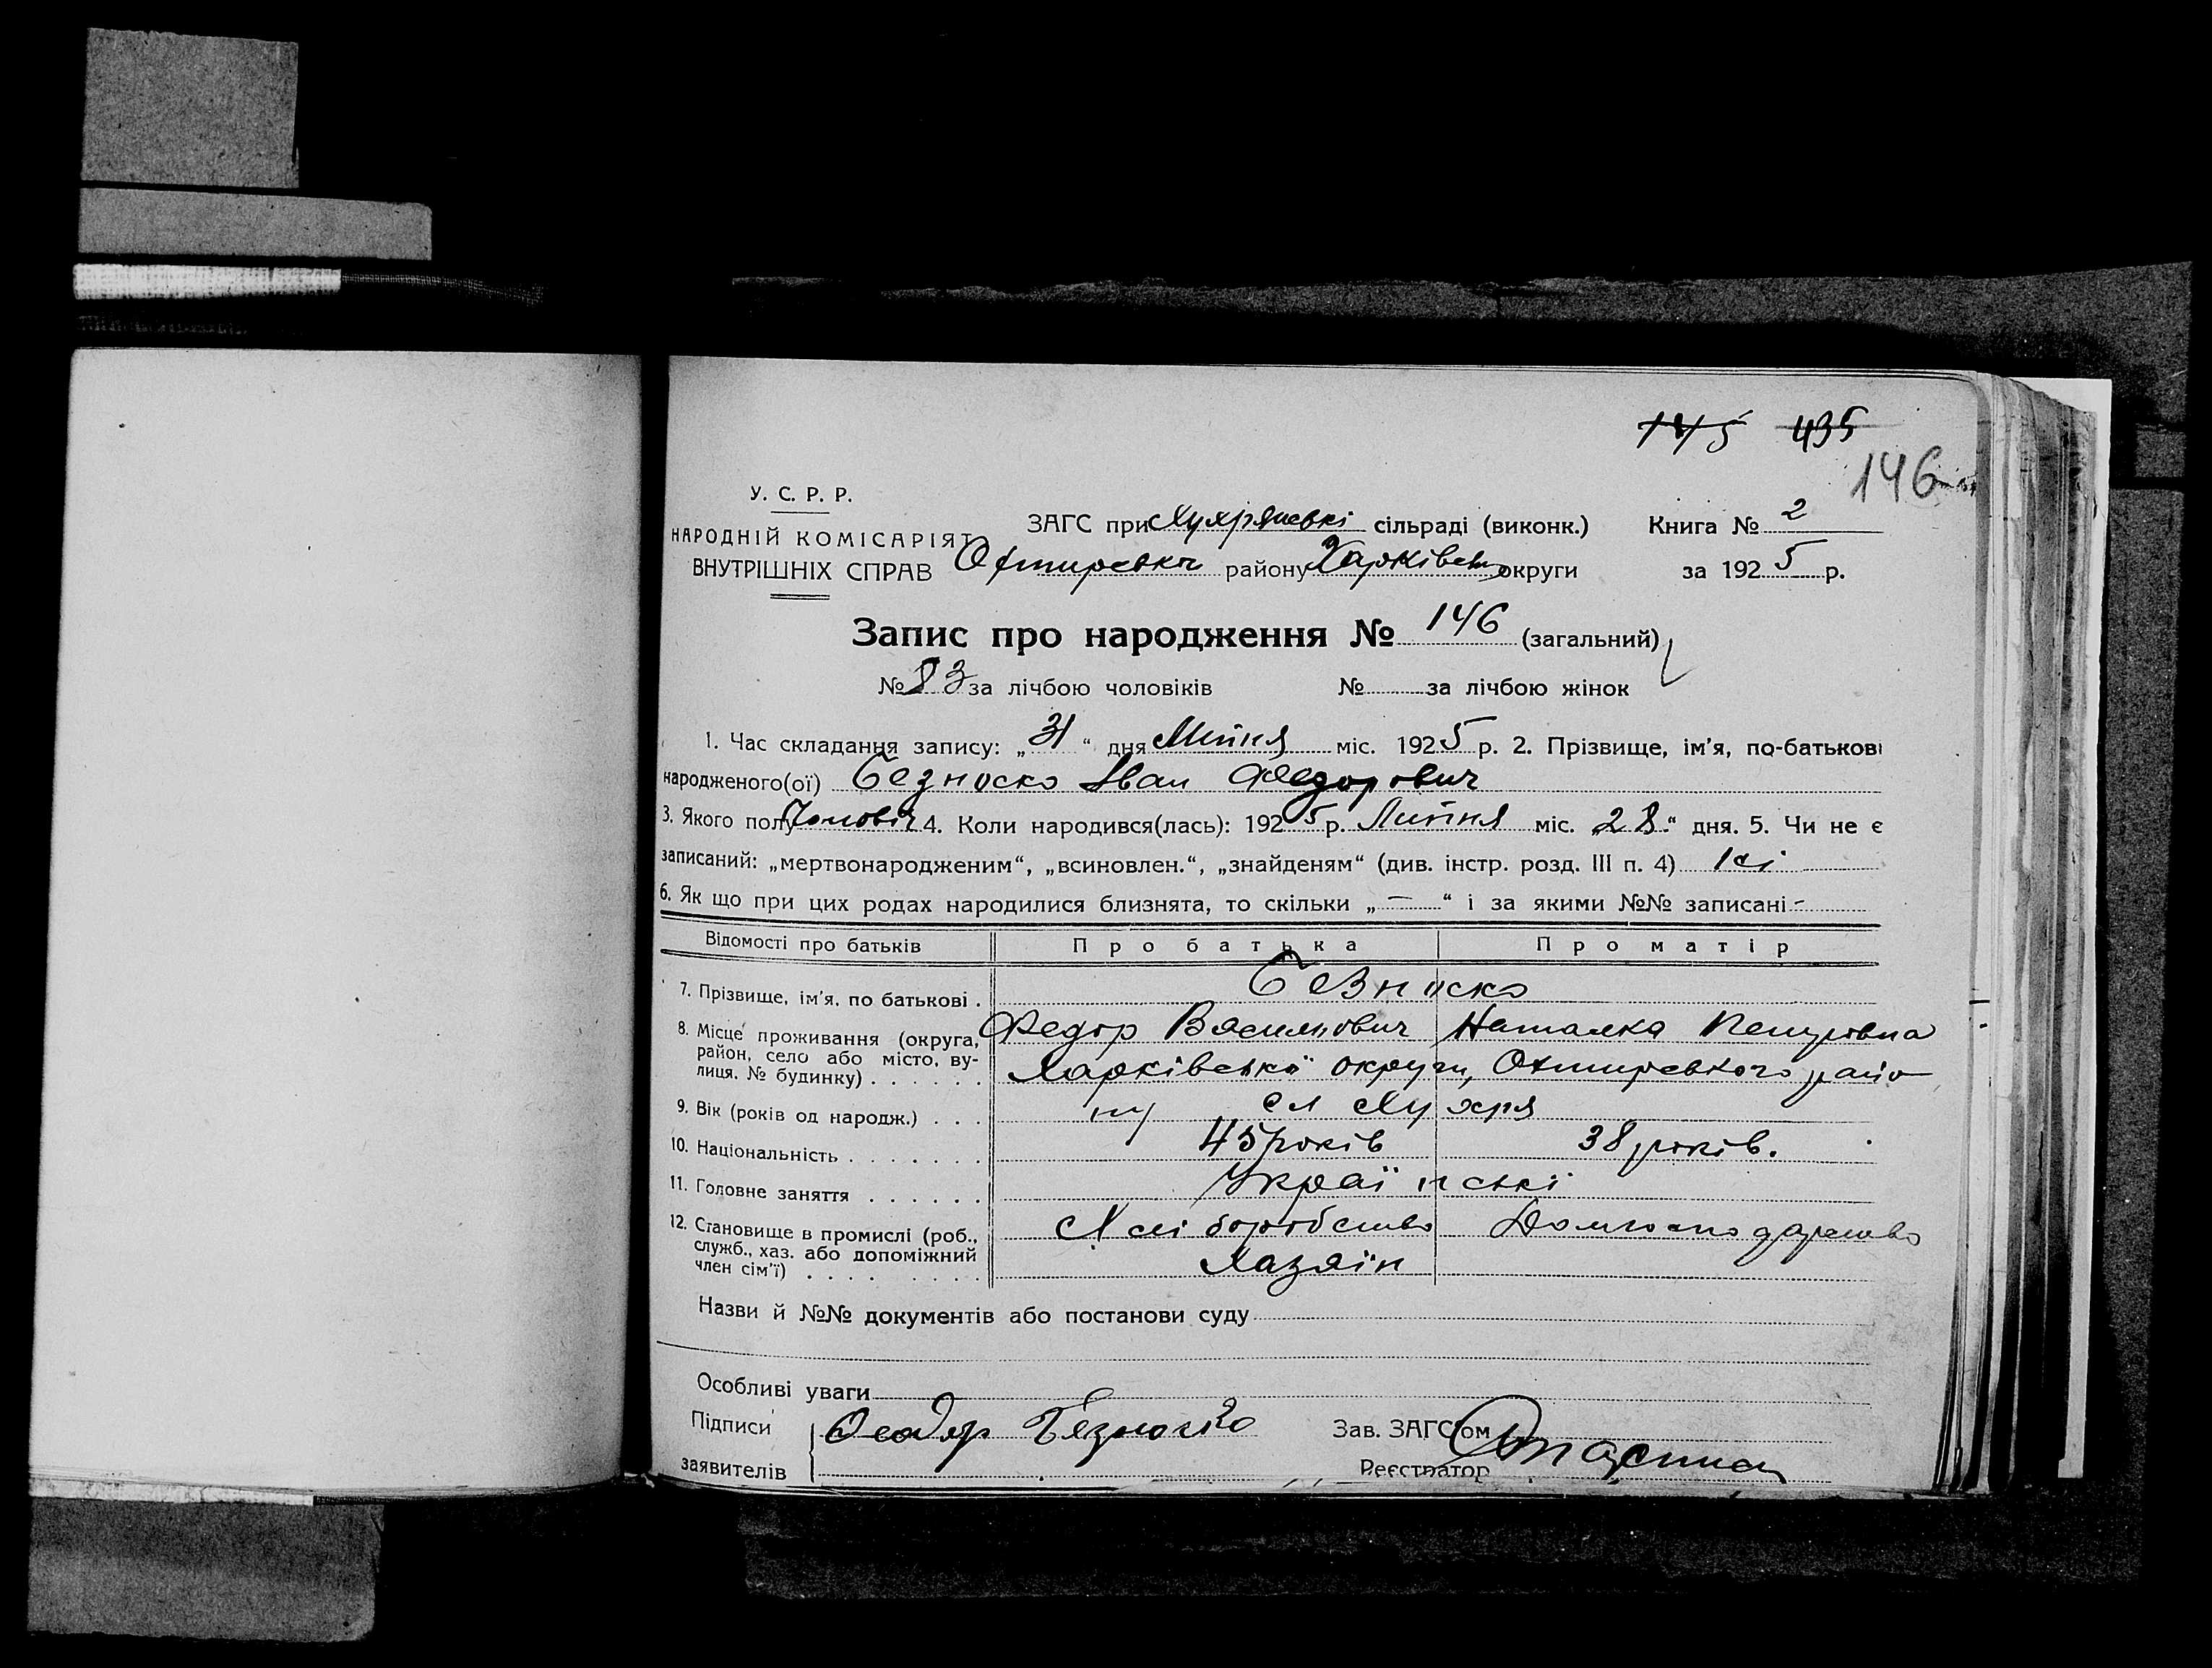 145 435
146
У. С. Р. Р.
НАРОДНІЙ КОМІСАРІЯТ
ВНУТРІШНІХ СПРАВ
ЗАГС при Хухрянскі сільраді (виконк.) Книга № 2
Охтирсько району Харківськ округи за 1925 р.
Запис про народження № 146 (загальний)
№ 83 за лічбою чоловіків № за лічбою жінок
1. Час складання запису: „31“ дня Липня міс. 1925 р. 2. Прізвище, ім'я, по-батькові
народженого(ої) Безноско Іван Федорович
3. Якого полу Чоловіч 4. Коли народився(лась): 1925 р. Липня міс. „28“ дня. 5. Чи не є
записаний: „мертвонародженим“, „всиновлен.“, „знайденям“ (див. інстр. розд. III п. 4) Ні
6. Як що при цих родах народилися близнята, то скільки „—“ і за якими №№ записані -
Відомості про батьків Про батька Про матір
7. Прізвище, ім'я, по батькові . Безноско
8. Місце проживання (округа, район, село або місто, вулиця, № будинку) . . . . . . Федор Васильович Наталка Петровна
Харківської округи, Охтирсвкого райо
9. Вік (років од народж.) . . . ну сл Хухря
10. Національність . . . . . . . 45 років 38 років.
11. Головне заняття . . . . . . Українські
12. Становище в промислі (роб., служб., хаз. або допоміжний член сім'ї) . . . . . . . . Хліборобство Домгосподарство
Хазяїн
Назви й №№ документів або постанови суду
Особливі уваги
Підписи заявителів Феодор Безноско Зав. ЗАГС'ом
Реєстратор